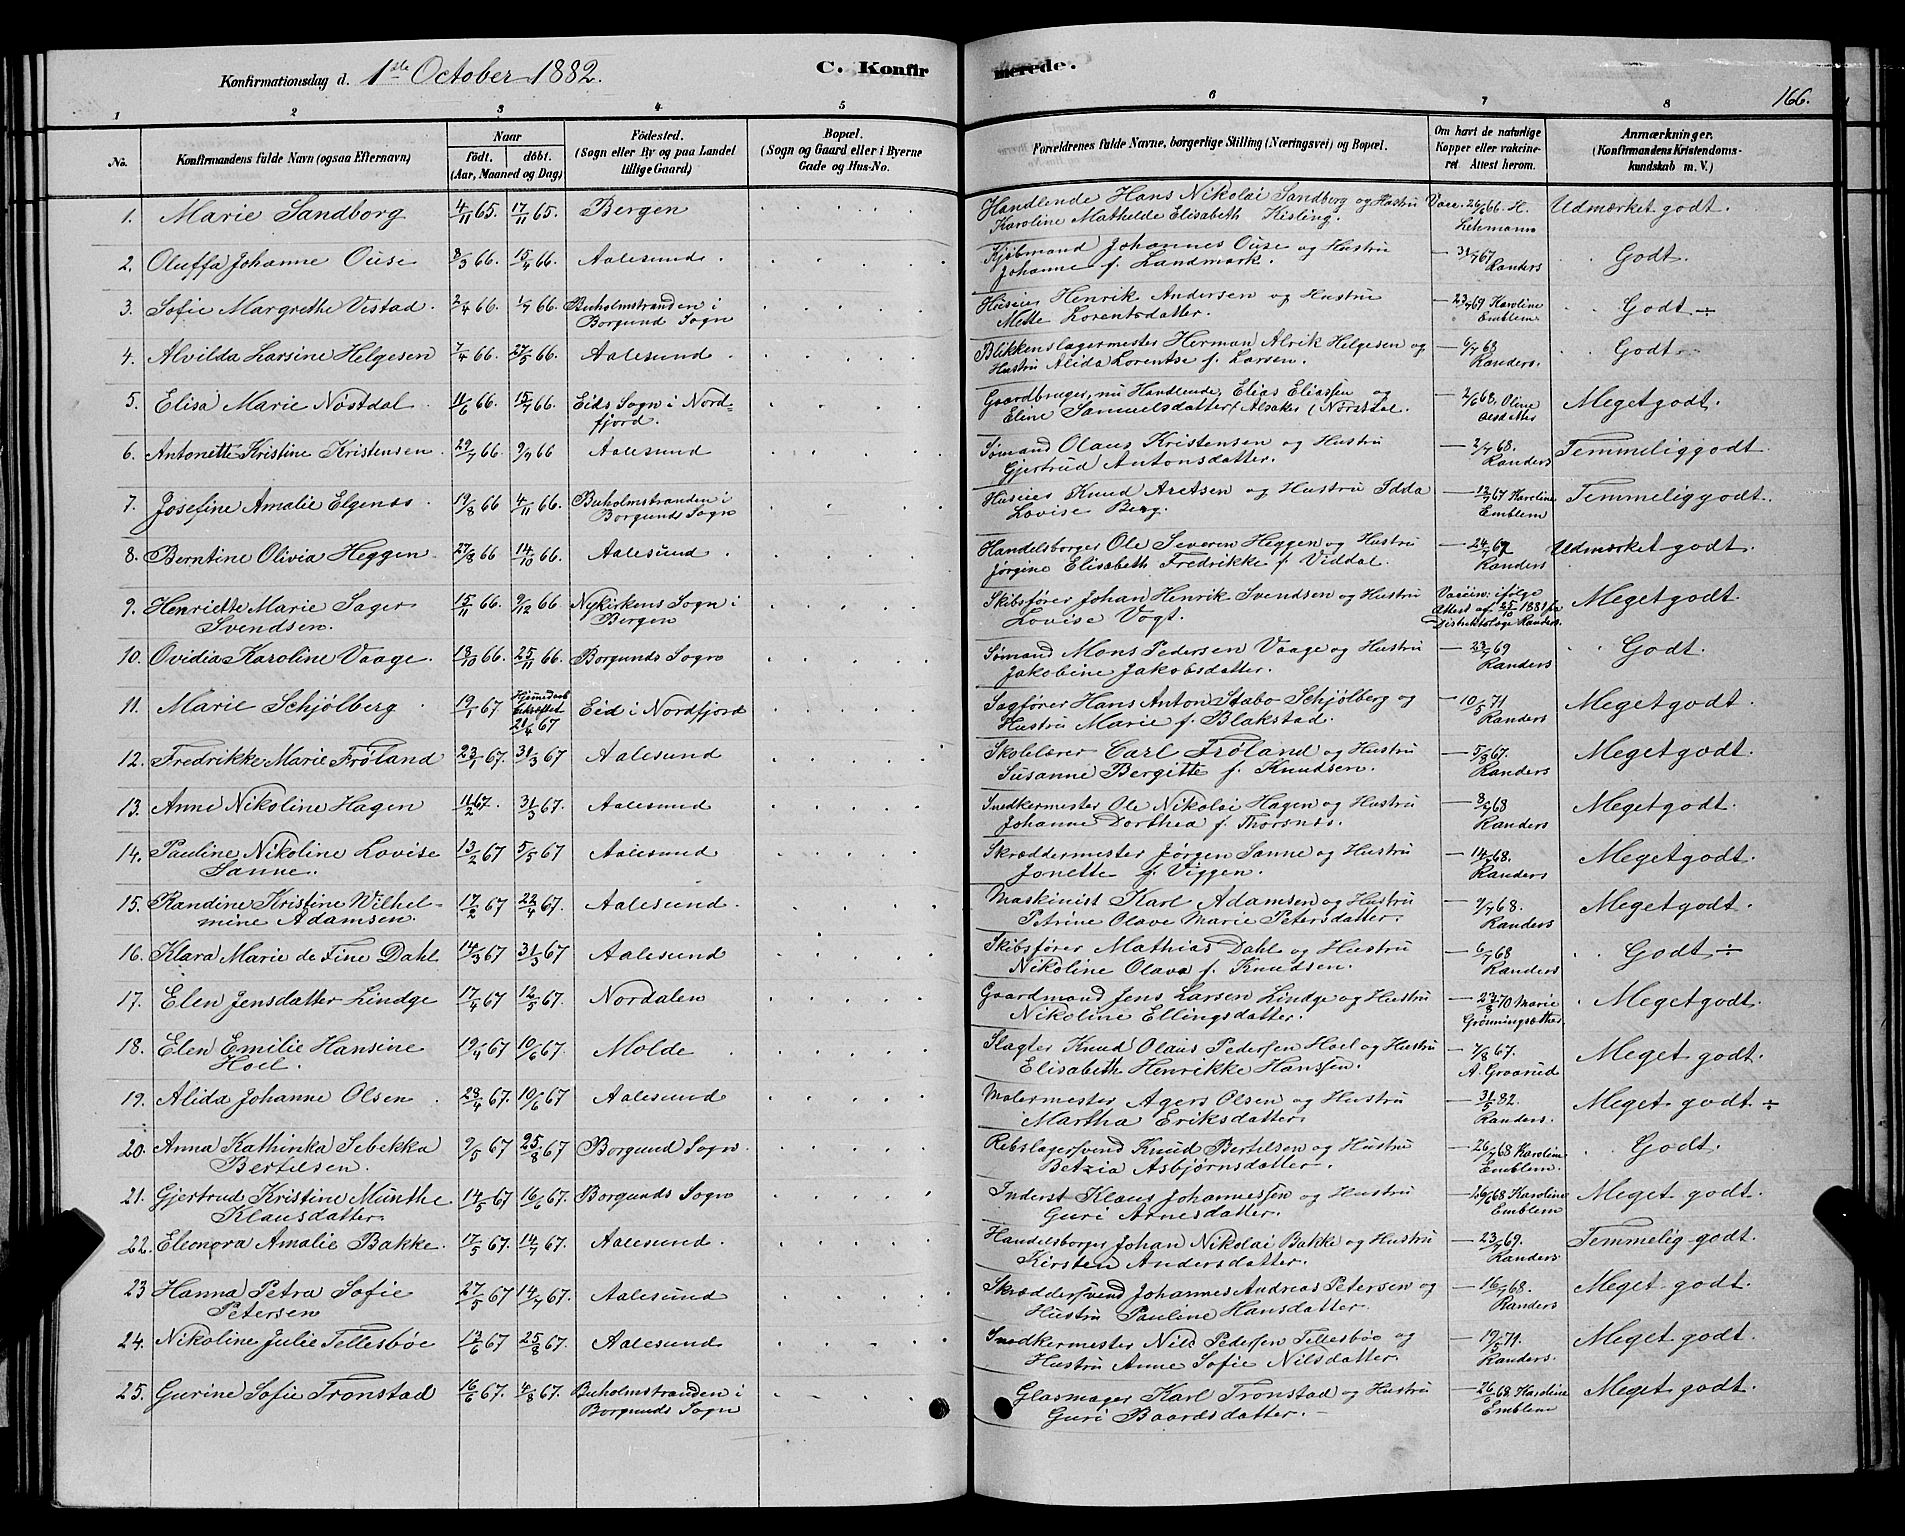 Konfirmationsdag d. 1ste October 1882.
C. Konfirmerede.
166.
1 2 3 4 5 6 7 8
No.
Konfirmandens fulde Navn (ogsaa Efternavn)
Naar
födt. döbt.
(Aar, Maaned og Dag)
Födested.
(Sogn eller By og paa Landet
tillige Gaard)
Bopæl.
(Sogn og Gaard eller i Byerne
Gade og Hus-No.
Forældrenes fulde Navne, borgerlige Stilling (Næringsvei) og Bopæl.
Om havt de naturlige
Kopper eller vakcine-
ret Attest herom.
Anmærkninger.
(Konfirmandens Kristendoms-
kundskab m. V.)
1. Marie Sandborg 4/11 65. 17/11 65. Bergen Handlende Hans Nikolai Sandberg og Hustru Vacc. 26/6 66. H. Udmærket godt.
Karoline Mathilde Elisabeth Kisling. Lehmann
2. Oluffa Johanne Ouse 8/3 66. 15/4 66. Aalesund. Kjøbmand Johannes Ouse og Hustru — 31/7 67 Godt.
Johanne f. Landmark. Randers
3. Sofie Margrethe Vestad. 2/4 66. 1/7 66. Buholmstranden i Huseier Henrik Andersen og Hustru — 23/7 69 Karoline Godt ÷
Borgund Sogn Mette Lorentsdatter. Emblem
4. Alvilda Larsine Helgesen 7/4 66. 27/5 66. Aalesund Blikkenslagermester Herman Alrik Helgesen og — 6/7 68 Godt.
Hustru Alida Lorentse f. Larsen. Randers.
5. Elisa Marie Nöstdal 11/6 66. 15/7 66. Eids Sogn i Nord- Gaardbruger, nu Handlende, Elias Eliassen og — 2/6 68. Oline Meget godt.
fjord. Eline Samuelsdatter Olsdatter
6. Antonette Kristine Kristensen 29/7 66. 9/9 66 Aalesund Sømand Olaus Kristensen og Hustru — 2/7 68. Temmelig godt
Gjertrud Antonsdatter. Randers
7. Josefine Amalie Elgenæs. 19/8 66 4/11 66. Buholmstranden i Huseier Knud Aretsen og Hustru Idda — 12/7 67 Karoline Temmelig godt.
Borgunds Sogn Lovise Berg. Emblem
8. Berntine Olivia Heggen 27/8 66 14/10 66. Aalesund Handelsborger Ole Severin Heggen og Hustru — 24/7 67 Udmærket godt.
Jørgine Elisabeth Fredrikke f. Viddal. Randers
9. Henriette Marie Sager 15/11 66. 9/12 66 Nykirkens Sogn i Skibsfører Johan Henrik Svendsen og Hustru Vaccin: ifølge Meget godt
Svendsen. Bergen Lovise Vogt. Attest af 25/10 1881 fra
Distriktslæge Randers.
10. Ovidia Karoline Vaage. 18/10 66. 25/11 66. Borgunds Sogn Sømand Mons Pedersen Vaage og Hustru — 23/7 69 Godt.
Jakobine Jakobsdatter. Randers
11. Marie Schjölberg 19/1 67 Hjemmedaab Eid i Nordfjord Sagfører Hans Anton Stabo Schjölberg og — 10/5 71 Meget godt.
21/4 67 Hustru Marie f. Blakstad. Randers
12. Fredrikke Marie Fröland 23/1 67. 31/3 67 Aalesund Skolelærer Carl Fröland og Hustru — 5/8 67. Meget godt.
Susanne Bergitte f. Knudsen. Randers
13. Anne Nikoline Hagen 11/2 67. 31/3 67. Aalesund Snedkermester Ole Nikolai Hagen og Hustru — 8/7 68 Meget godt.
Johanne Dorthea f. Thorsnes. Randers
14. Pauline Nikoline Lovise 13/2 67 5/5 67 Aalesund Skræddermester Jørgen Sanne og Hustru — 14/7 68. Meget godt.
Sanne. Jonette f. Viggen. Randers
15. Randine Kristine Wilhel- 17/2 67 22/4 67. Aalesund. Maskinist Karl Adamsen og Hustru — 9/7 68. Meget godt.
mine Adamsen. Petrine Olave Marie Petersdatter. Randers
16. Klara Marie de Fine Dahl 14/3 67 31/3 67 Aalesund Skibsfører Mathias Dahl og Hustru — 6/7 68 Godt ÷
Nikoline Olava f. Knudsen. Randers
17. Elen Jensdatter Lindge 17/4 67 12/5 67. Nordalen Gaardmand Jens Larsen Lindge og Hustru — 23/8 70 Marie Meget godt.
Nikoline Ellingsdatter. Grönningsæther
18. Elen Emilie Hansine 19/4 67 10/6 67. Molde Slagter Knud Olaus Pedersen Hoel og Hustru — 7/8 67. Meget godt.
Hoel. Elisabeth Henrikke Hanssen. A. Graarud
19. Alida Johanne Olsen 28/4 67. 10/6 67 Aalesund Malermester Agers Olsen og Hustru — 31/5 82. Meget godt ÷
Martha Eriksdatter. Randers.
20. Anna Kathinka Sebekka 9/5 67 25/8 67 Borgund Sogn. Rebslagersvend Knud Bertelsen og Hustru — 26/7 68 Karoline Godt.
Bertelsen. Betzia Asbjørnsdatter. Emblem.
21. Gjertrud Kristine Münthe 14/5 67 16/6 67. Borgunds Sogn Inderst Klaus Johannessen og Hustru — 26/6 68 Karoline Meget godt
Klausdatter. Guri Arnesdatter. Emblem
22. Eleonora Amalie Bakke. 17/5 67. 14/7 67. Aalesund. Handelsborger Johan Nikolai Bakke og Hustru — 23/7 69. Temmelig godt.
Kirsten Andersdatter. Randers.
23 Hanna Petra Sofie 27/5 67. 14/7 67. Aalesund Skræddersvend Johannes Andreas Petersen og — 16/7 68. Meget godt
Petersen Hustru Pauline Hansdatter. Randers
24. Nikoline Julie Tellesböe 13/6 67 25/8 67. Aalesund Snedkermester Nils Pedersen Tellesbøe og — 19/5 71. Meget godt
Hustru Anne Sofie Nilsdatter. Randers.
25. Gurine Sofie Tronstad 16/6 67. 4/8 67. Buholmstranden i Glasmager Karl Tronstad og Hustru — 26/6 68 Karoline Meget godt.
Borgunds Sogn Guri Baardsdatter. Emblem